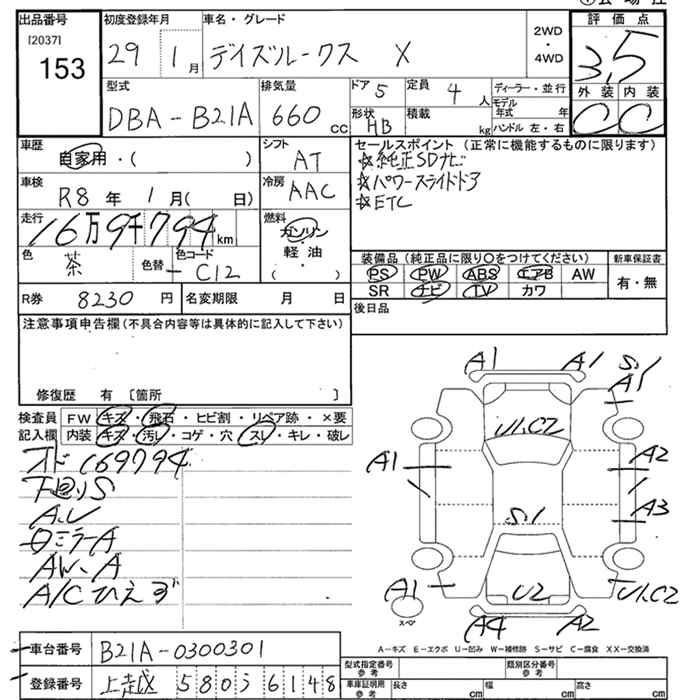 出品番号 初度登録年月 車名・グレード 評価点
[2037] 2WD
153 29 1月 デイズルークス X ・4WD 3,5
型式 排気量 ドア 5 定員 4人 ディーラー・並行 外装 内装
DBA-B21A 660cc 形状 HB 積載 kg モデル年式 年 C C
ハンドル 左・右
車歴 シフト セールスポイント (正常に機能するものに限ります)
自家用・( ) AT ☆純正SDナビ
車検 冷房 ☆パワースライドドア
R8年 1月( 日) AAC ☆ETC
走行 燃料
16万9千794km ガソリン・軽・油・( )
色 色替 色コード 装備品 (純正品に限り○をつけてください) 新車保証書
茶 - C12 PS PW ABS エアB AW 有・無
SR ナビ TV カワ
R券 8230円 名変期限 月 日 後日品
注意事項申告欄(不具合内容等は具体的に記入して下さい)
修復歴 有 〔箇所 〕
検査員 FW キズ・飛石・ヒビ割・リペア跡・×要
記入欄 内装 キズ・汚レ・コゲ・穴・スレ・キレ・破レ
オド169794
下廻りS
A.U
ロミラーA
AW.A
A/Cひえず
A1 A1 S1
A1
U1.C2
A1 A2
A3
S1
A1 U2 U1.C2
スペア
A4 A2
A-キズ E-エクボ U-凹み W-補修跡 S-サビ C-腐食 XX-交換済
車台番号 B21A-0300301
型式指定番号 参考 類別区分番号 参考
登録番号 上越 580 う 6148
車庫証明用 参考 長さ cm 幅 cm 高さ cm